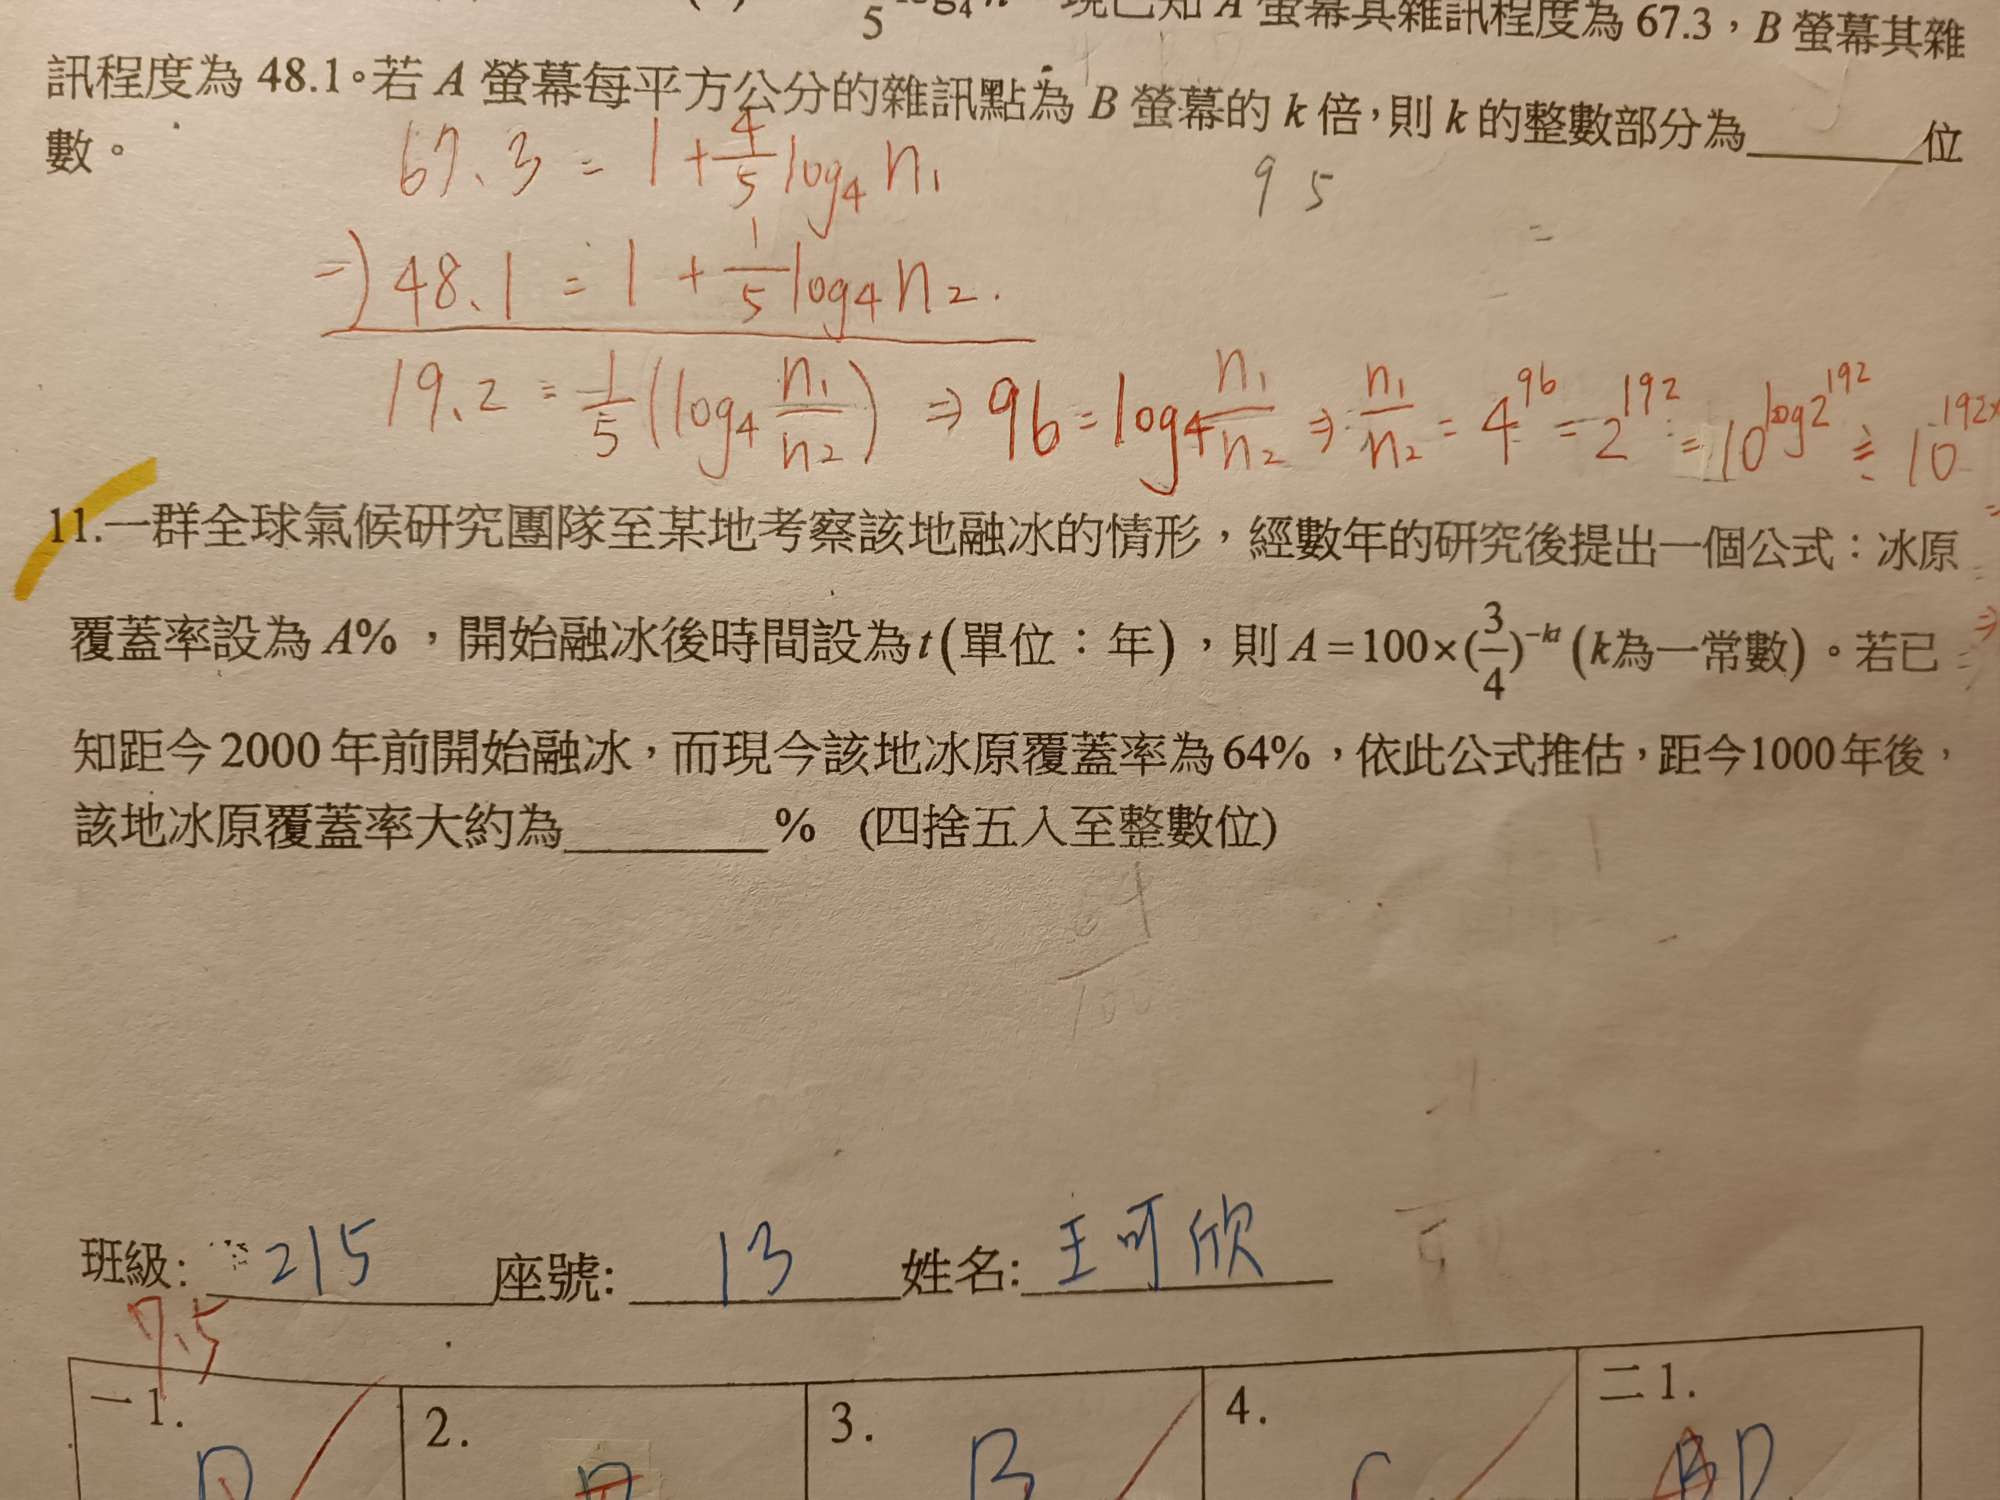 5 log₄ n 現已知 A 螢幕其雜訊程度為 67.3,B 螢幕其雜
訊程度為 48.1。若 A 螢幕每平方公分的雜訊點為 B 螢幕的 k 倍,則 k 的整數部分為________位
數。
67.3 = 1 + 4/5 log₄ n₁
95
-) 48.1 = 1 + 1/5 log₄ n₂.
19.2 = 1/5 (log₄ n₁/n₂) ⇒ 96 = log₄ n₁/n₂ ⇒ n₁/n₂ = 4^96 = 2^192 = 10^log2^192 ≒ 10^192×
11.一群全球氣候研究團隊至某地考察該地融冰的情形,經數年的研究後提出一個公式:冰原
覆蓋率設為 A%,開始融冰後時間設為 t (單位:年),則 A = 100×(3/4)^-kt (k為一常數)。若已
知距今 2000 年前開始融冰,而現今該地冰原覆蓋率為 64%,依此公式推估,距今1000年後,
該地冰原覆蓋率大約為________% (四捨五入至整數位)
64/100
班級: 215 座號: 13 姓名: 王可欣
7.5
一 1. 2. 3. 4. 二 1.
D B C BD